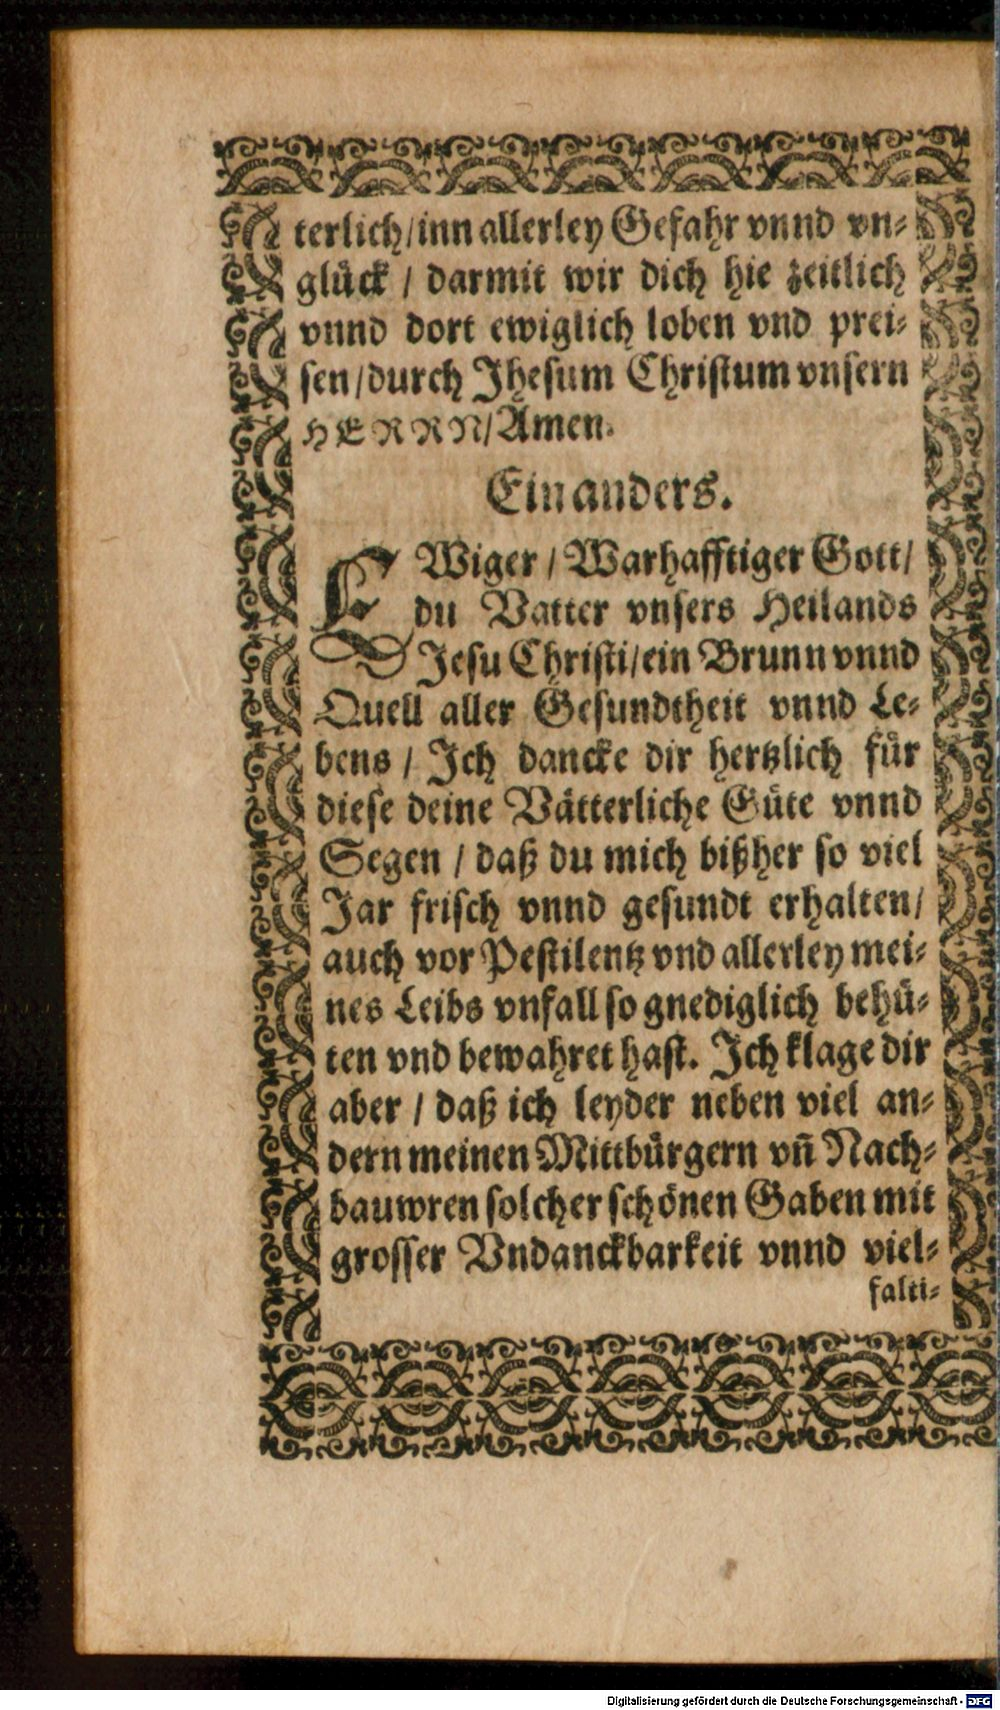 terlich/inn allerley Gefahr vnnd vn⸗
glück / darmit wir dich hie zeitlich
vnnd dort ewiglich loben vnd prei⸗
sen/durch Jhesum Christum vnsern
HERRN/Amen.
Ein anders.
EWiger / Warhafftiger Gott/
du Vatter vnsers Heilands
Jesu Christi/ein Brunn vnnd
Quell aller Gesundtheit vnnd Le⸗
bens / Ich dancke dir hertzlich für
diese deine Vätterliche Güte vnnd
Segen / daß du mich bißher so viel
Jar frisch vnnd gesundt erhalten/
auch vor Pestilentz vnd allerley mei⸗
nes Leibs vnfall so gnediglich behü⸗
ten vnd bewahret hast. Ich klage dir
aber / daß ich leyder neben viel an⸗
dern meinen Mittbürgern vñ Nach⸗
bauwren solcher schönen Gaben mit
grosser Vndanckbarkeit vnnd viel⸗
falti⸗
Digitalisierung gefördert durch die Deutsche Forschungsgemeinschaft - DFG